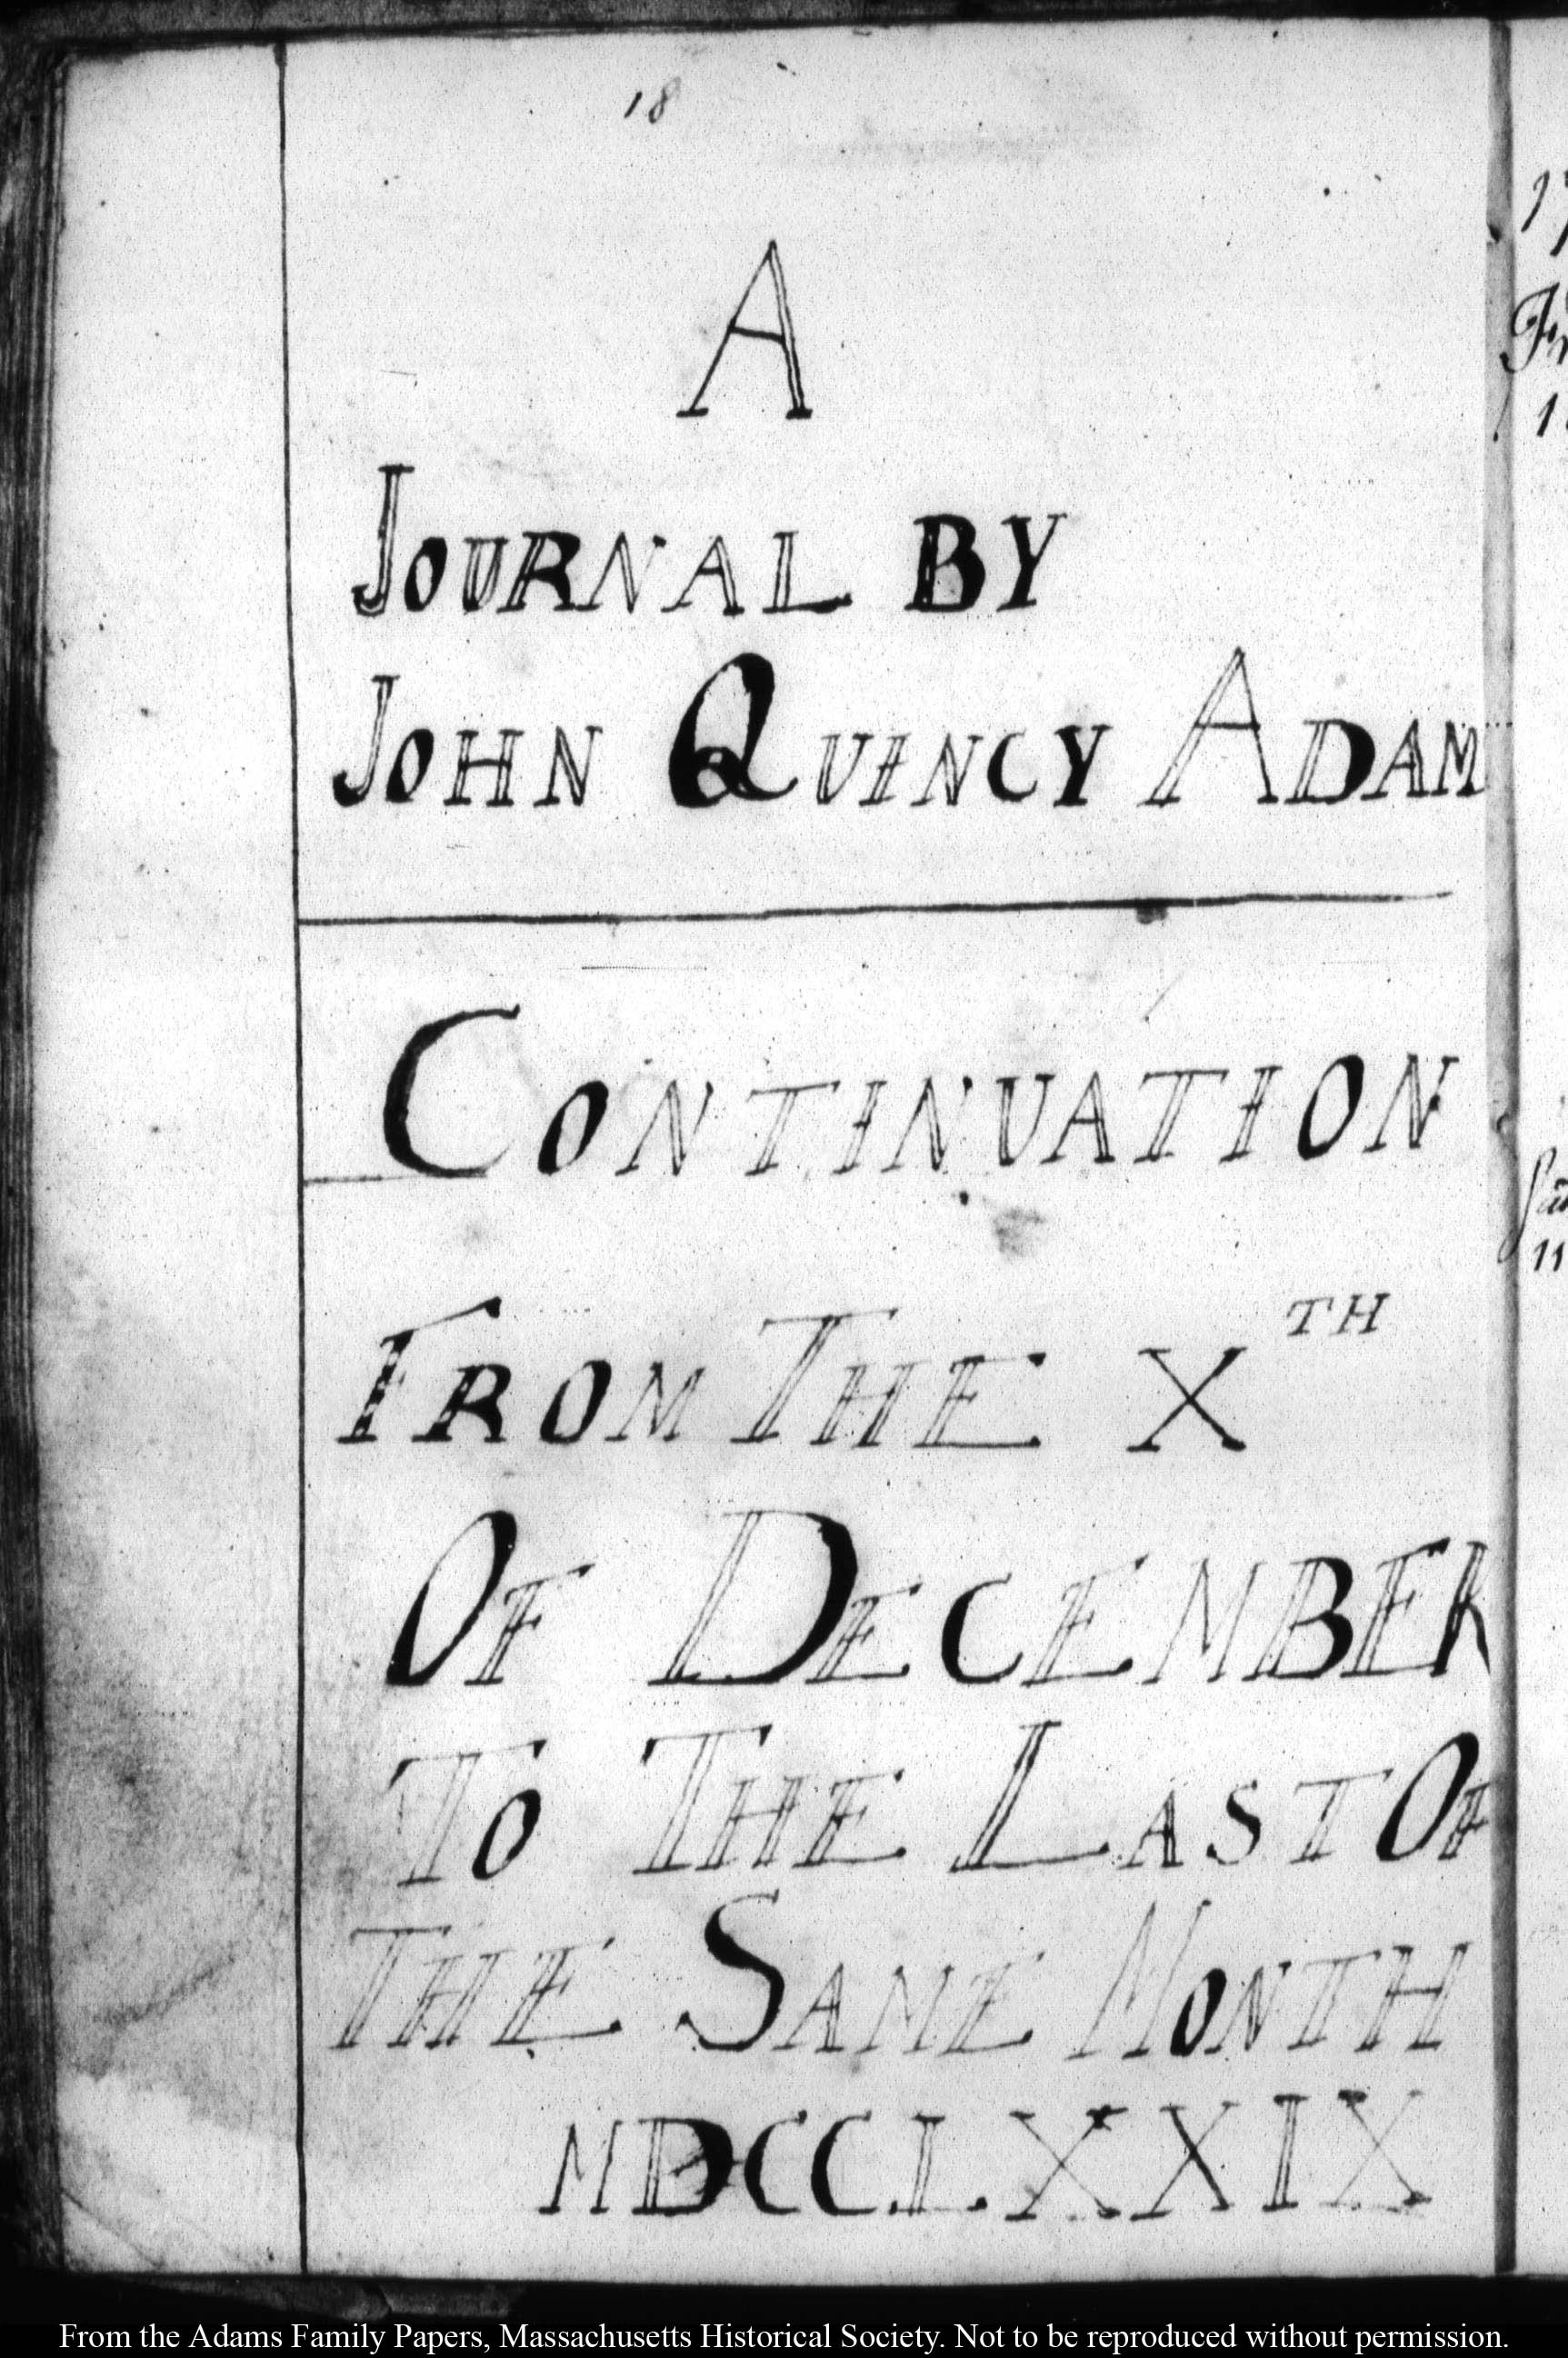 18
A
JOURNAL BY
JOHN QUINCY ADAM
CONTINUATION
FROM THE XTH
OF DECEMBER
TO THE LAST OF
THE SAME MONTH
MDCCLXXIX
From the Adams Family Papers, Massachusetts Historical Society. Not to be reproduced without permission.